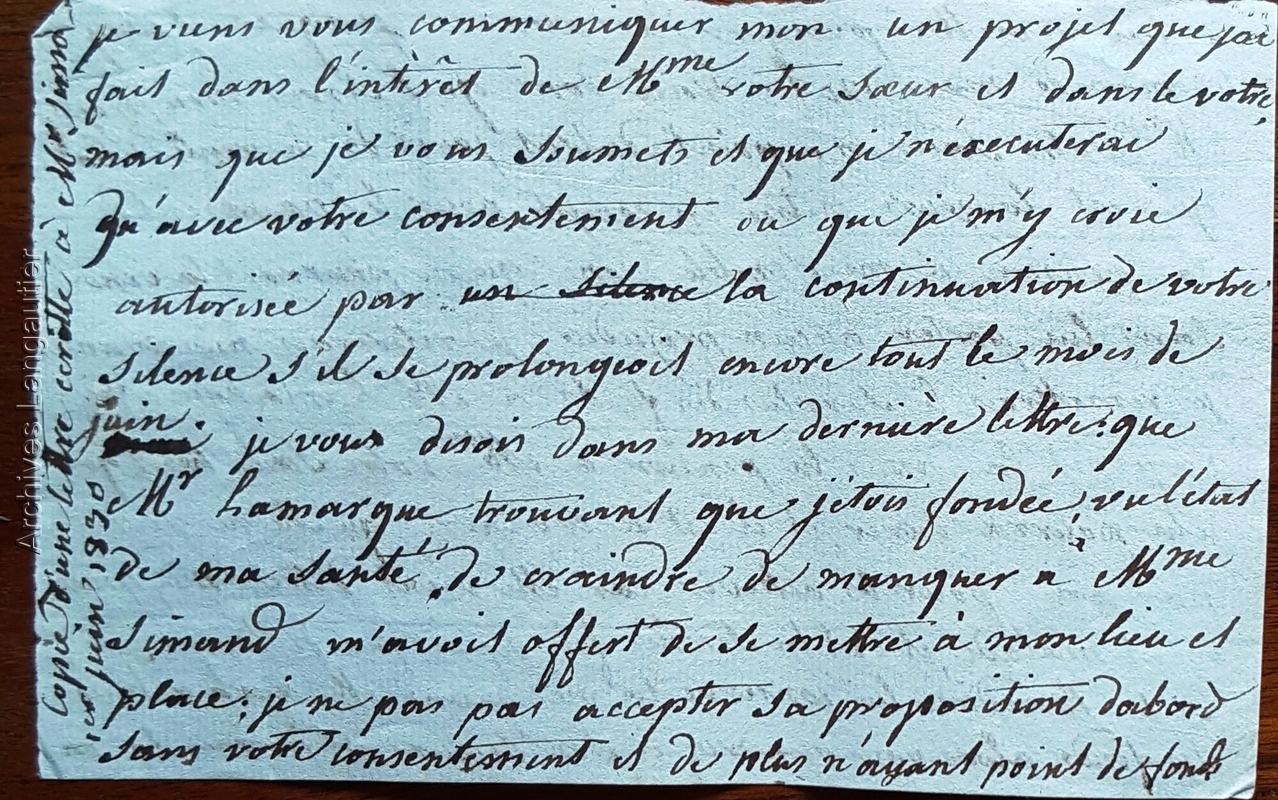 je viens vous communiquer mon un projet que j'ai
fait dans l'intèrêt de Mme votre sœur et dans le votre,
mais que je vous soumets et que je n'éxecuterai
qu'avec votre consentement ou que je m'y croie
autorisée par un silence la continuation de votre
silence s'il se prolongeoit encore tout le mois de
juin. je vous disois dans ma dernière lettre que
Mr Lamarque trouvant que j'etois fondée, vu l'état
de ma santé, de craindre de manquer à Mme
Simand m'avoit offert de se mettre à mon lieu et
place; je ne pas pas accepter sa proposition dabord
sans votre consentement et de plus n'ayant point de fonds
Copie d'une lettre ecritte à Mr Simand
1er juin 1830
Archives Langautier